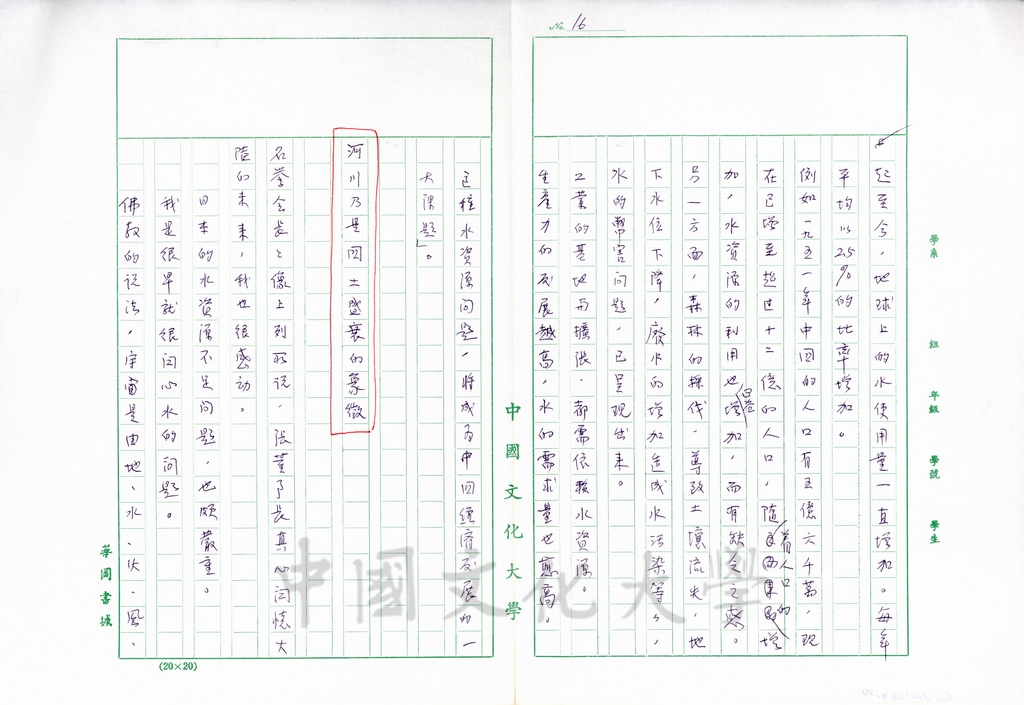 № 16
起至今，地球上的水使用量一直增加。每年
平均以25%的比率增加。
例如一九五一年中国的人口有五億六千萬，現
在已增至超过十二億的人口，隨着人口的增
加，水資源的利用也日益增加，而有缺乏之感。
另一方面，森林的採伐，導致土壤流失，地
下水位下降，廢水的增加造成水污染等々，
水的弊害问題，已呈現出来。
工業的基地再擴張，都需依賴水資源。
生產力的发展越高，水的需求量也愈高。
包括水資源问題，將成为中囯经濟发展的一
大课題」。
河川乃是囯土盛衰的象徵
名誉会長之像上列所说，张董事長真心関懷大
陸的未来，我也很感动。
日本的水資源不足问題，也頗嚴重。
我是很早就很関心水的问題。
佛教的说法，宇宙是由地、水、火、風、
學系 組 年級 學號 學生
中國文化大學
華岡書城
(20×20)
中國文化大學